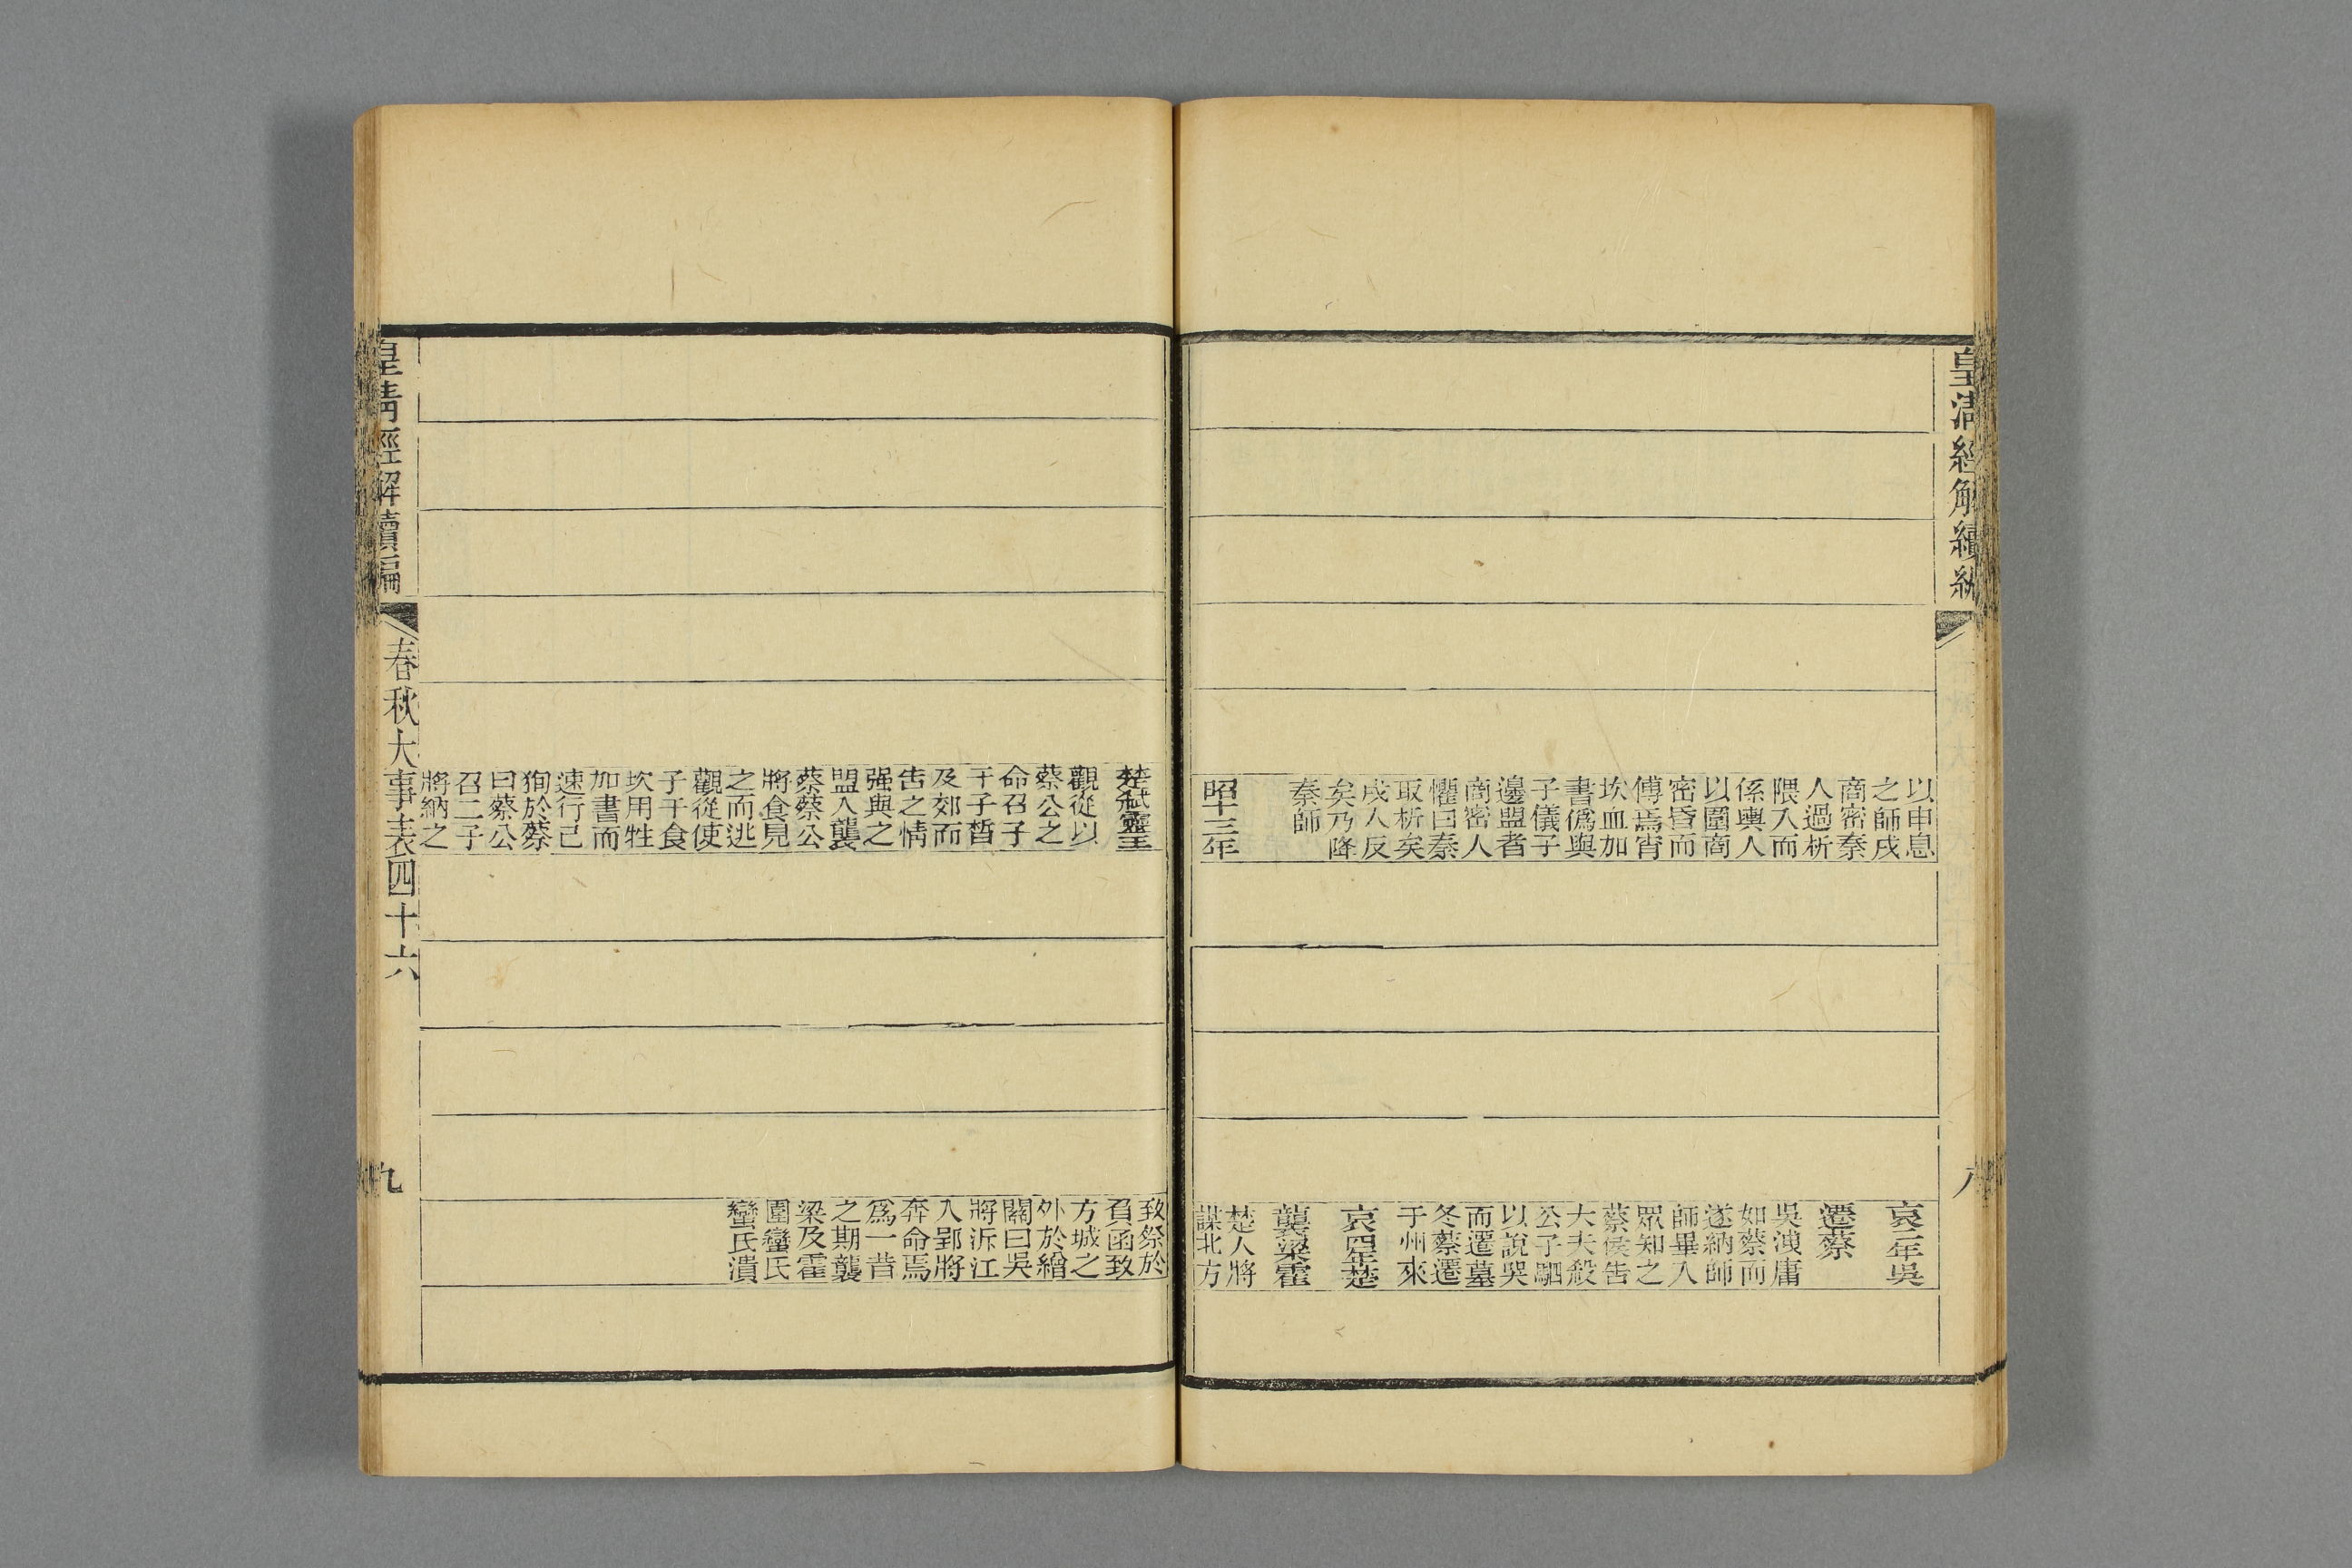 皇清經解續編
以申息
之師戍
商密秦
人過析
隈入而
係輿人
以圍商
密昏而
傅焉宵
坎血加
書僞與
子儀子
邊盟者
商密人
懼曰秦
取析矣
戍人反
矣乃降
秦師
昭十三年
哀二年吳
遷蔡
吳洩庸
如蔡而
遂納師
師畢入
眾知之
蔡侯告
大夫殺
公子駟
以說哭
而遷墓
冬蔡遷
于州來
哀四年楚
襲梁霍
楚人將
謀北方
八
楚弒靈王
觀從以
蔡公之
命召子
干子晳
及郊而
告之情
强與之
盟入襲
蔡蔡公
將食見
之而逃
觀從使
子干食
坎用牲
加書而
速行己
徇於蔡
曰蔡公
召二子
將納之
致祭於
負函致
方城之
外於繒
關曰吳
將泝江
入郢將
奔命焉
爲一昔
之期襲
梁及霍
圍蠻氏
蠻氏潰
皇清經解續編
春秋大事表四十六
九